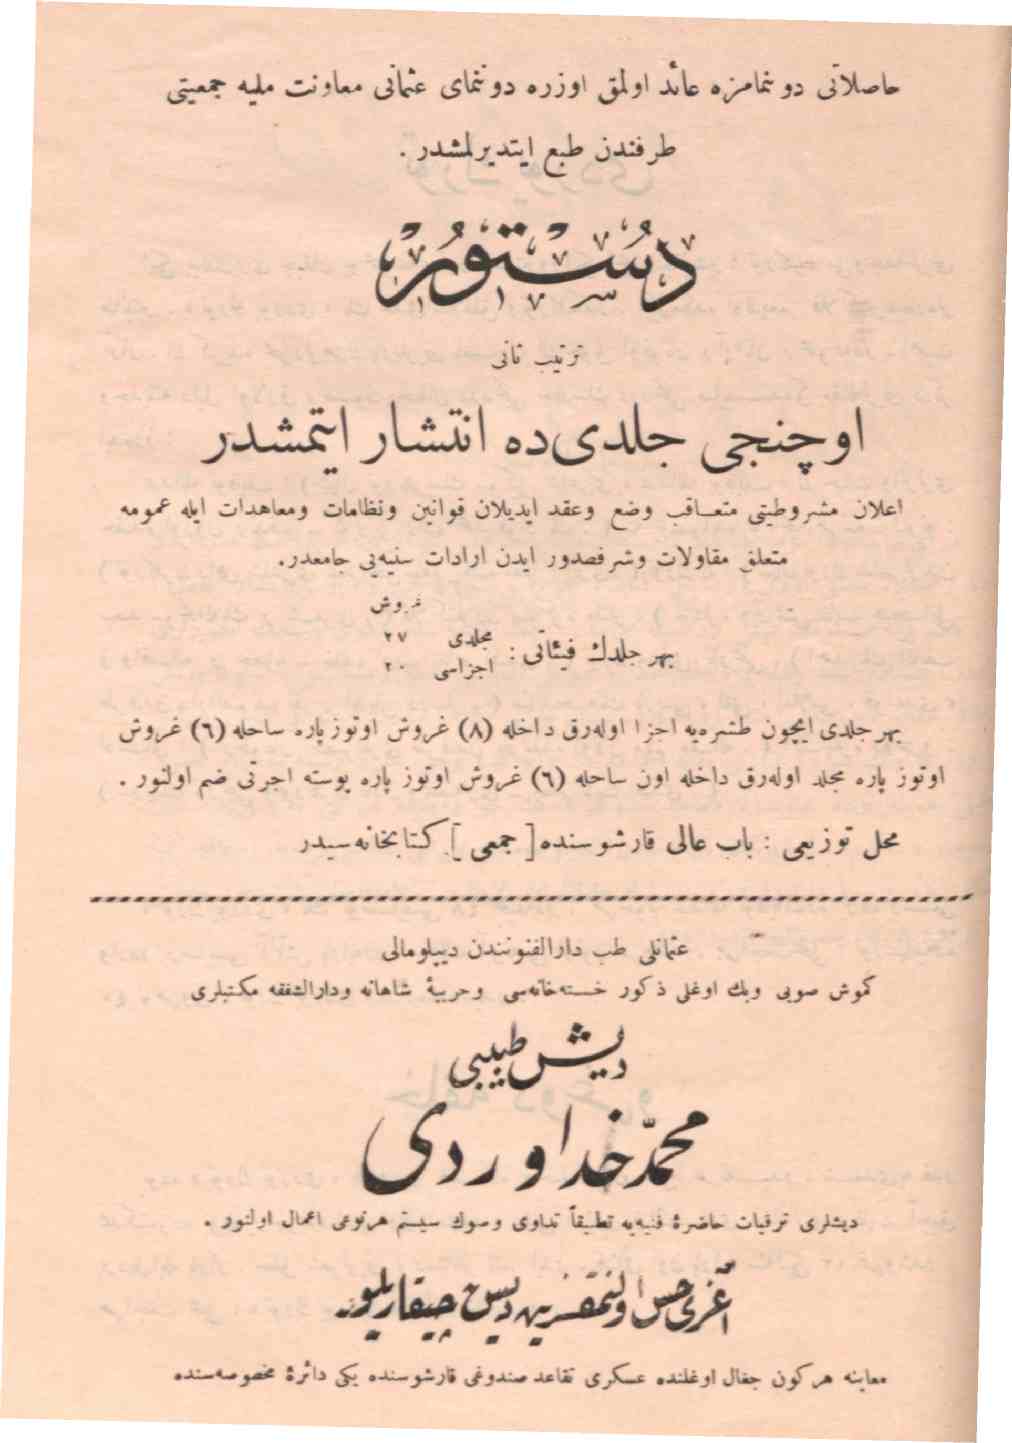 حاصلاتی دونمامزه عائد اولمق اوزره دوننمای عثمانی معاونت ملیه جمعیتی
طرفندن طبع ایتدیرلمشدر .
دستور
ترتیب ثانی
اوچنجی جلدی ده انتشار ایتمشدر
اعلان مشروطیتی متعاقب وضع وعقد ایدیلان قوانین ونظامات ومعاهدات ایله عمومه
متعلق مقاولات وشرفصدور ایدن ارادات سنیه‌یی جامعدر.
غروش
بهر جلدك فیئاتی : مجلدی ٢٧
اجزاسی ٢٠
بهر جلدی ایچون طشره‌یه اجزا اوله‌رق داخله (٨) غروش اوتوز پاره ساحله (٦) غروش
اوتوز پاره مجلد اوله‌رق داخله اون ساحله (٦) غروش اوتوز پاره پوسته اجرتی ضم اولنور .
محل توزیعی : باب عالی قارشوسنده [ جمعی ] كتابخانه‌سیدر
عثمانلی طب دارالفنونندن دیپلومالی
كموش صویی وبك اوغلی ذكور خسته‌خانه‌سی وحربیهٔ شاهانه ودارالشفقه مكتبلری
دیش طبیبی
محمد خداوردی
دیشلری ترقیات حاضرهٔ فنیه‌یه تطبیقاً تداوی وصوك سیستم هرنوعی اعمال اولنور .
آغری حس اولنمقسزین دیش چیقاریلیور
معاینه هركون جغال اوغلنده عسكری تقاعد صندوغی قارشوسنده یكی دائرهٔ مخصوصه‌سنده